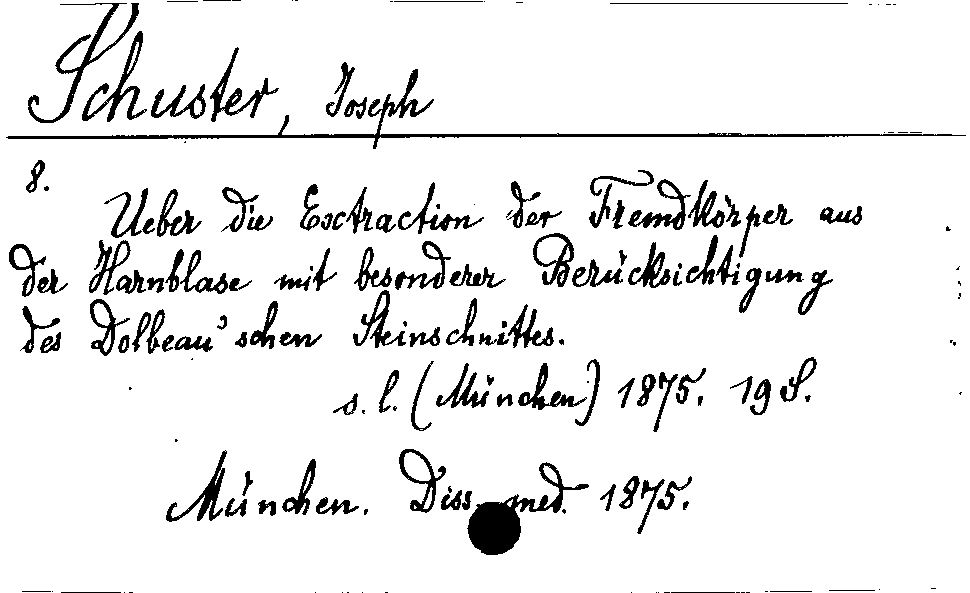 Schuster, Joseph
8.
Ueber die Exctraction der Fremdkörper aus
der Harnblase mit besonderer Berücksichtigung
des Dolbeau'schen Steinschnittes.
s. l. (München) 1875. 19 S.
München. Diss. med. 1875.